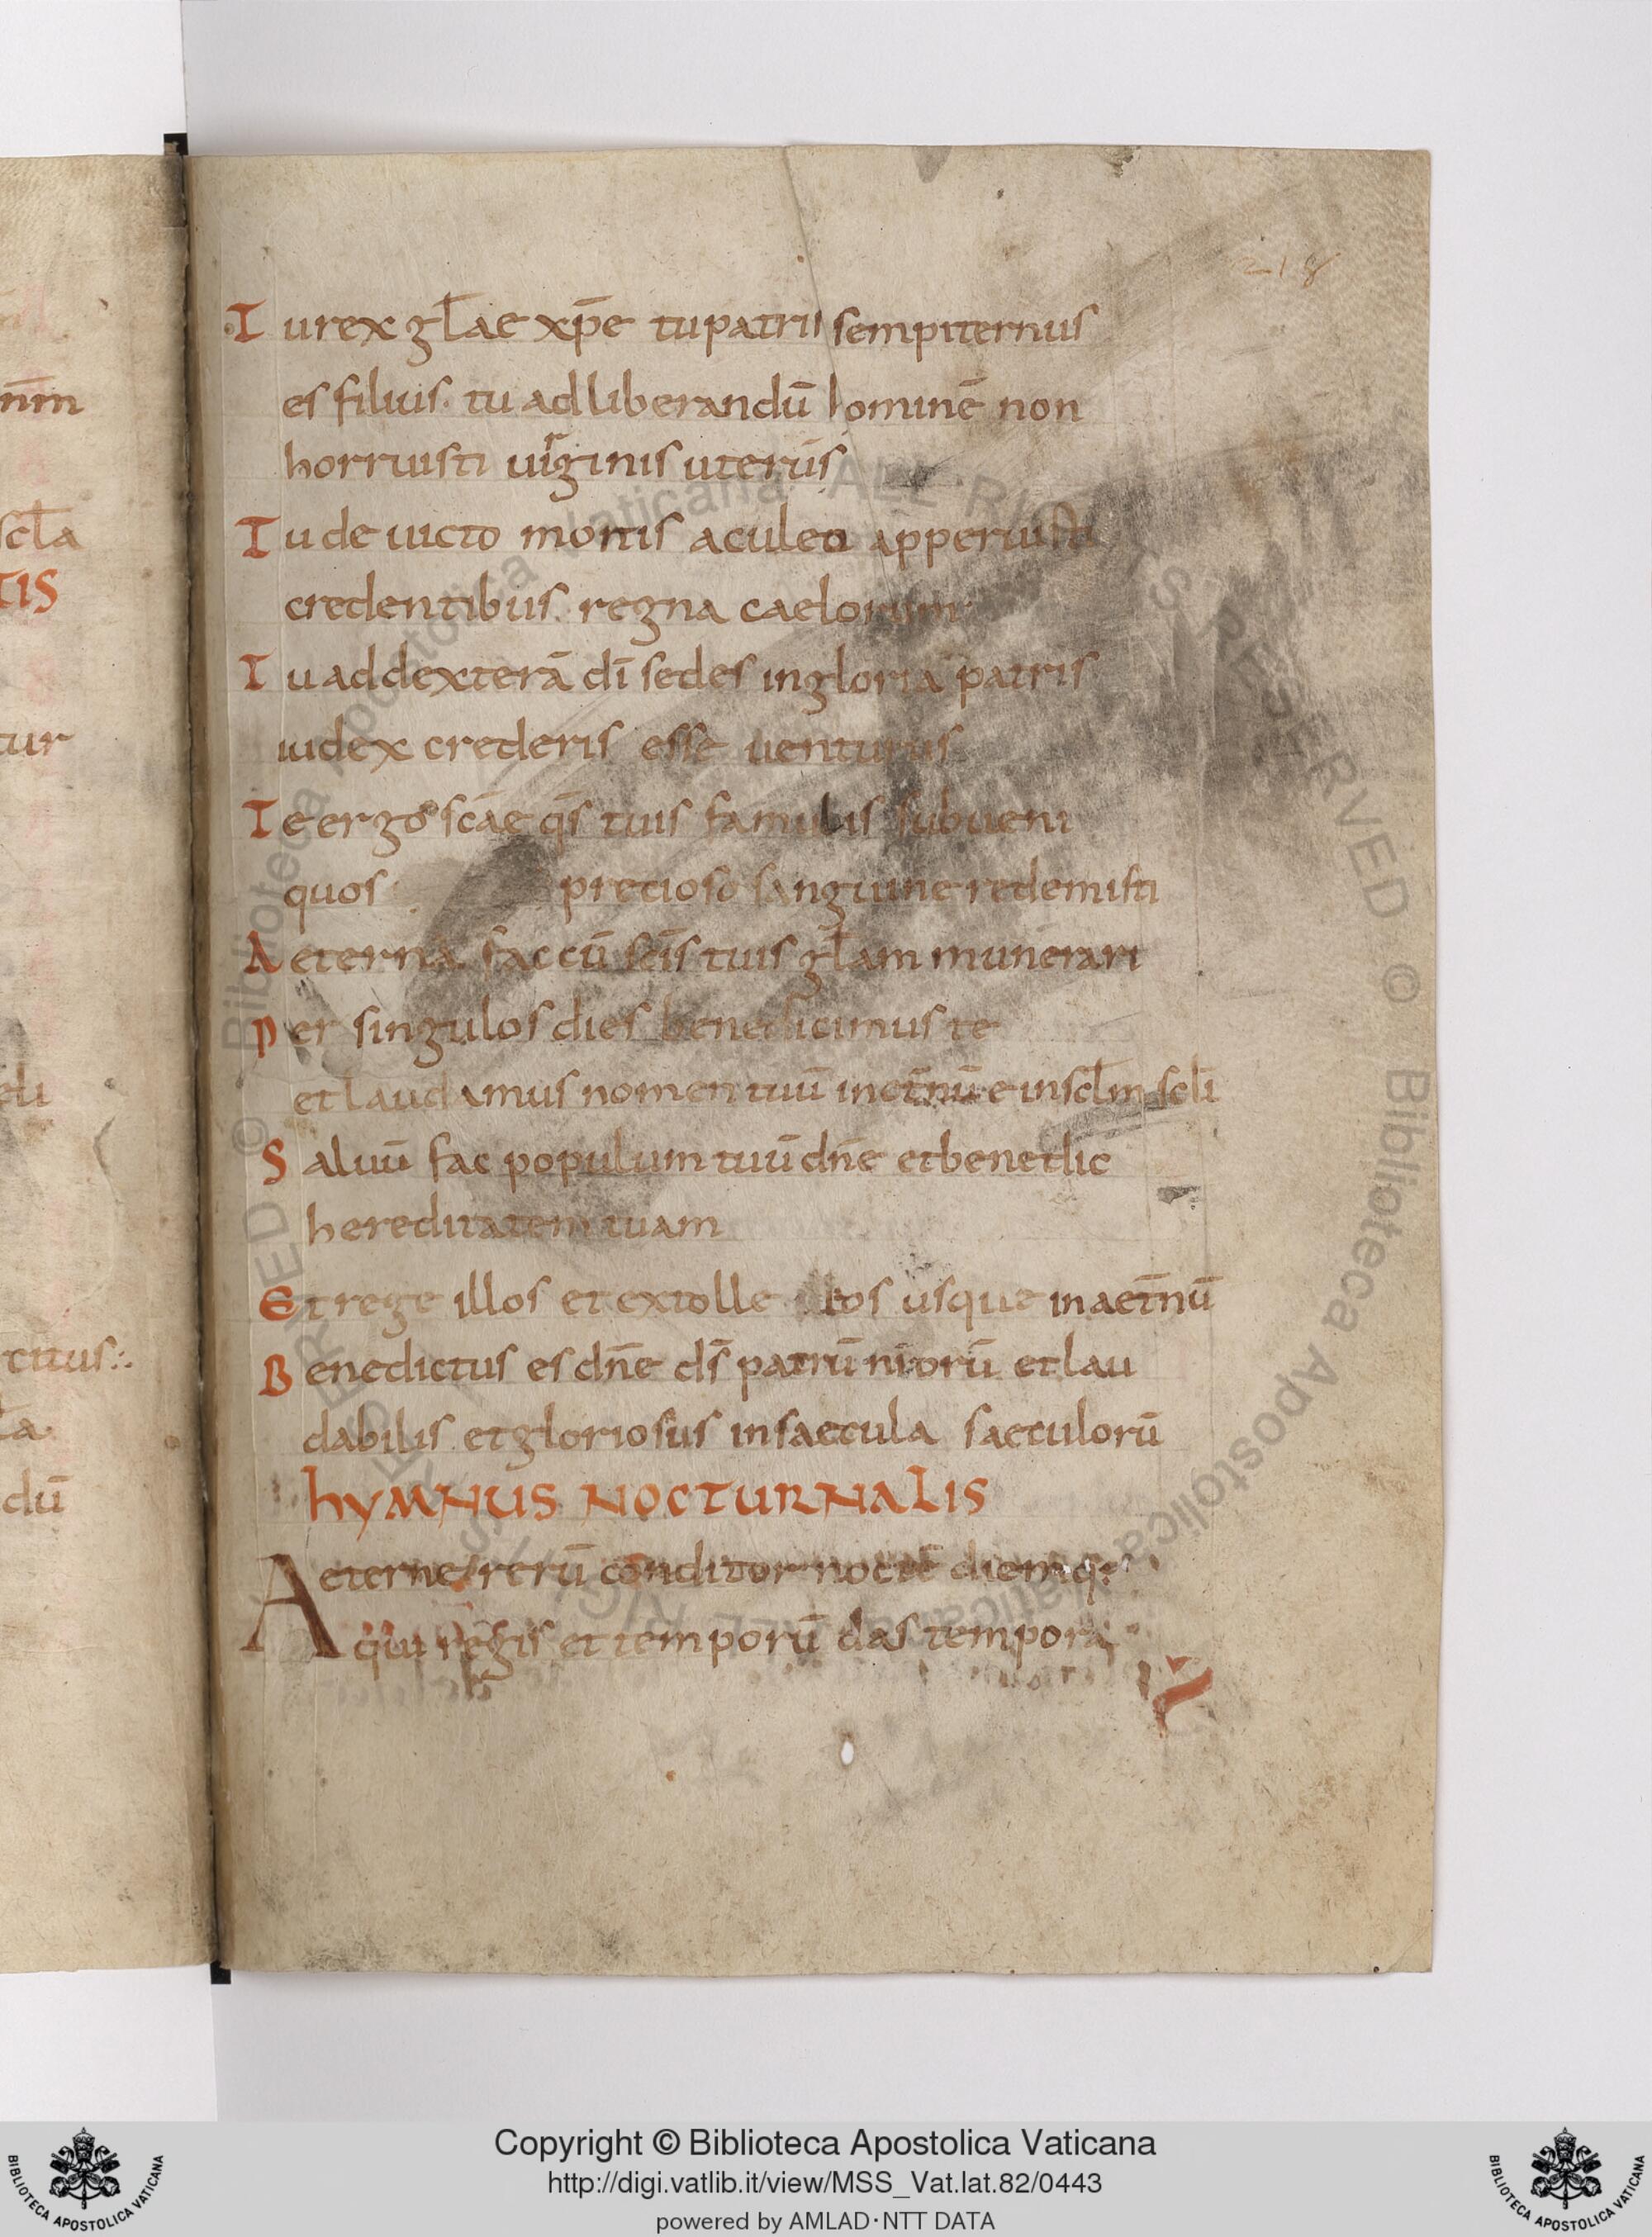 218
Tu rex gl̄ae xp̄e tu patris sempiternus
es filius. tu ad liberandū hominē non
horruisti uirginis uterūs
Tu deuicto mortis aculeo apperuisti
credentibus. regna caelorum
Tu ad dexterā dī sedes in gloria patris
iudex crederis esse uenturus
Te ergo scāe q̄s tuis famulis subueni
quos precioso sanguine redemisti
Aeterna fac cū scīs tuis gl̄am munerari
Per singulos dies benedicimus te
et laudamus nomen tuū in et̄nū e in scl̄m scl̄i
Saluū fac populum tuū dn̄e et benedic
hereditatem tuam
Et rege illos et extolle illos usque in aet̄nū
Benedictus es dn̄e ds̄ patrū nrōrū et lau
dabilis et gloriosus in saecula saeculorū
hYMNUS NOCTURNALIS
Aeterne rerū conditor noctē diemq:
qui regis et temporū das tempora
nm̄
scl̄a
TIS
tur
eli
citus:.
dū
Copyright © Biblioteca Apostolica Vaticana
http://digi.vatlib.it/view/MSS_Vat.lat.82/0443
powered by AMLAD·NTT DATA
BIBLIOTECA APOSTOLICA VATICANA
BIBLIOTECA APOSTOLICA VATICANA